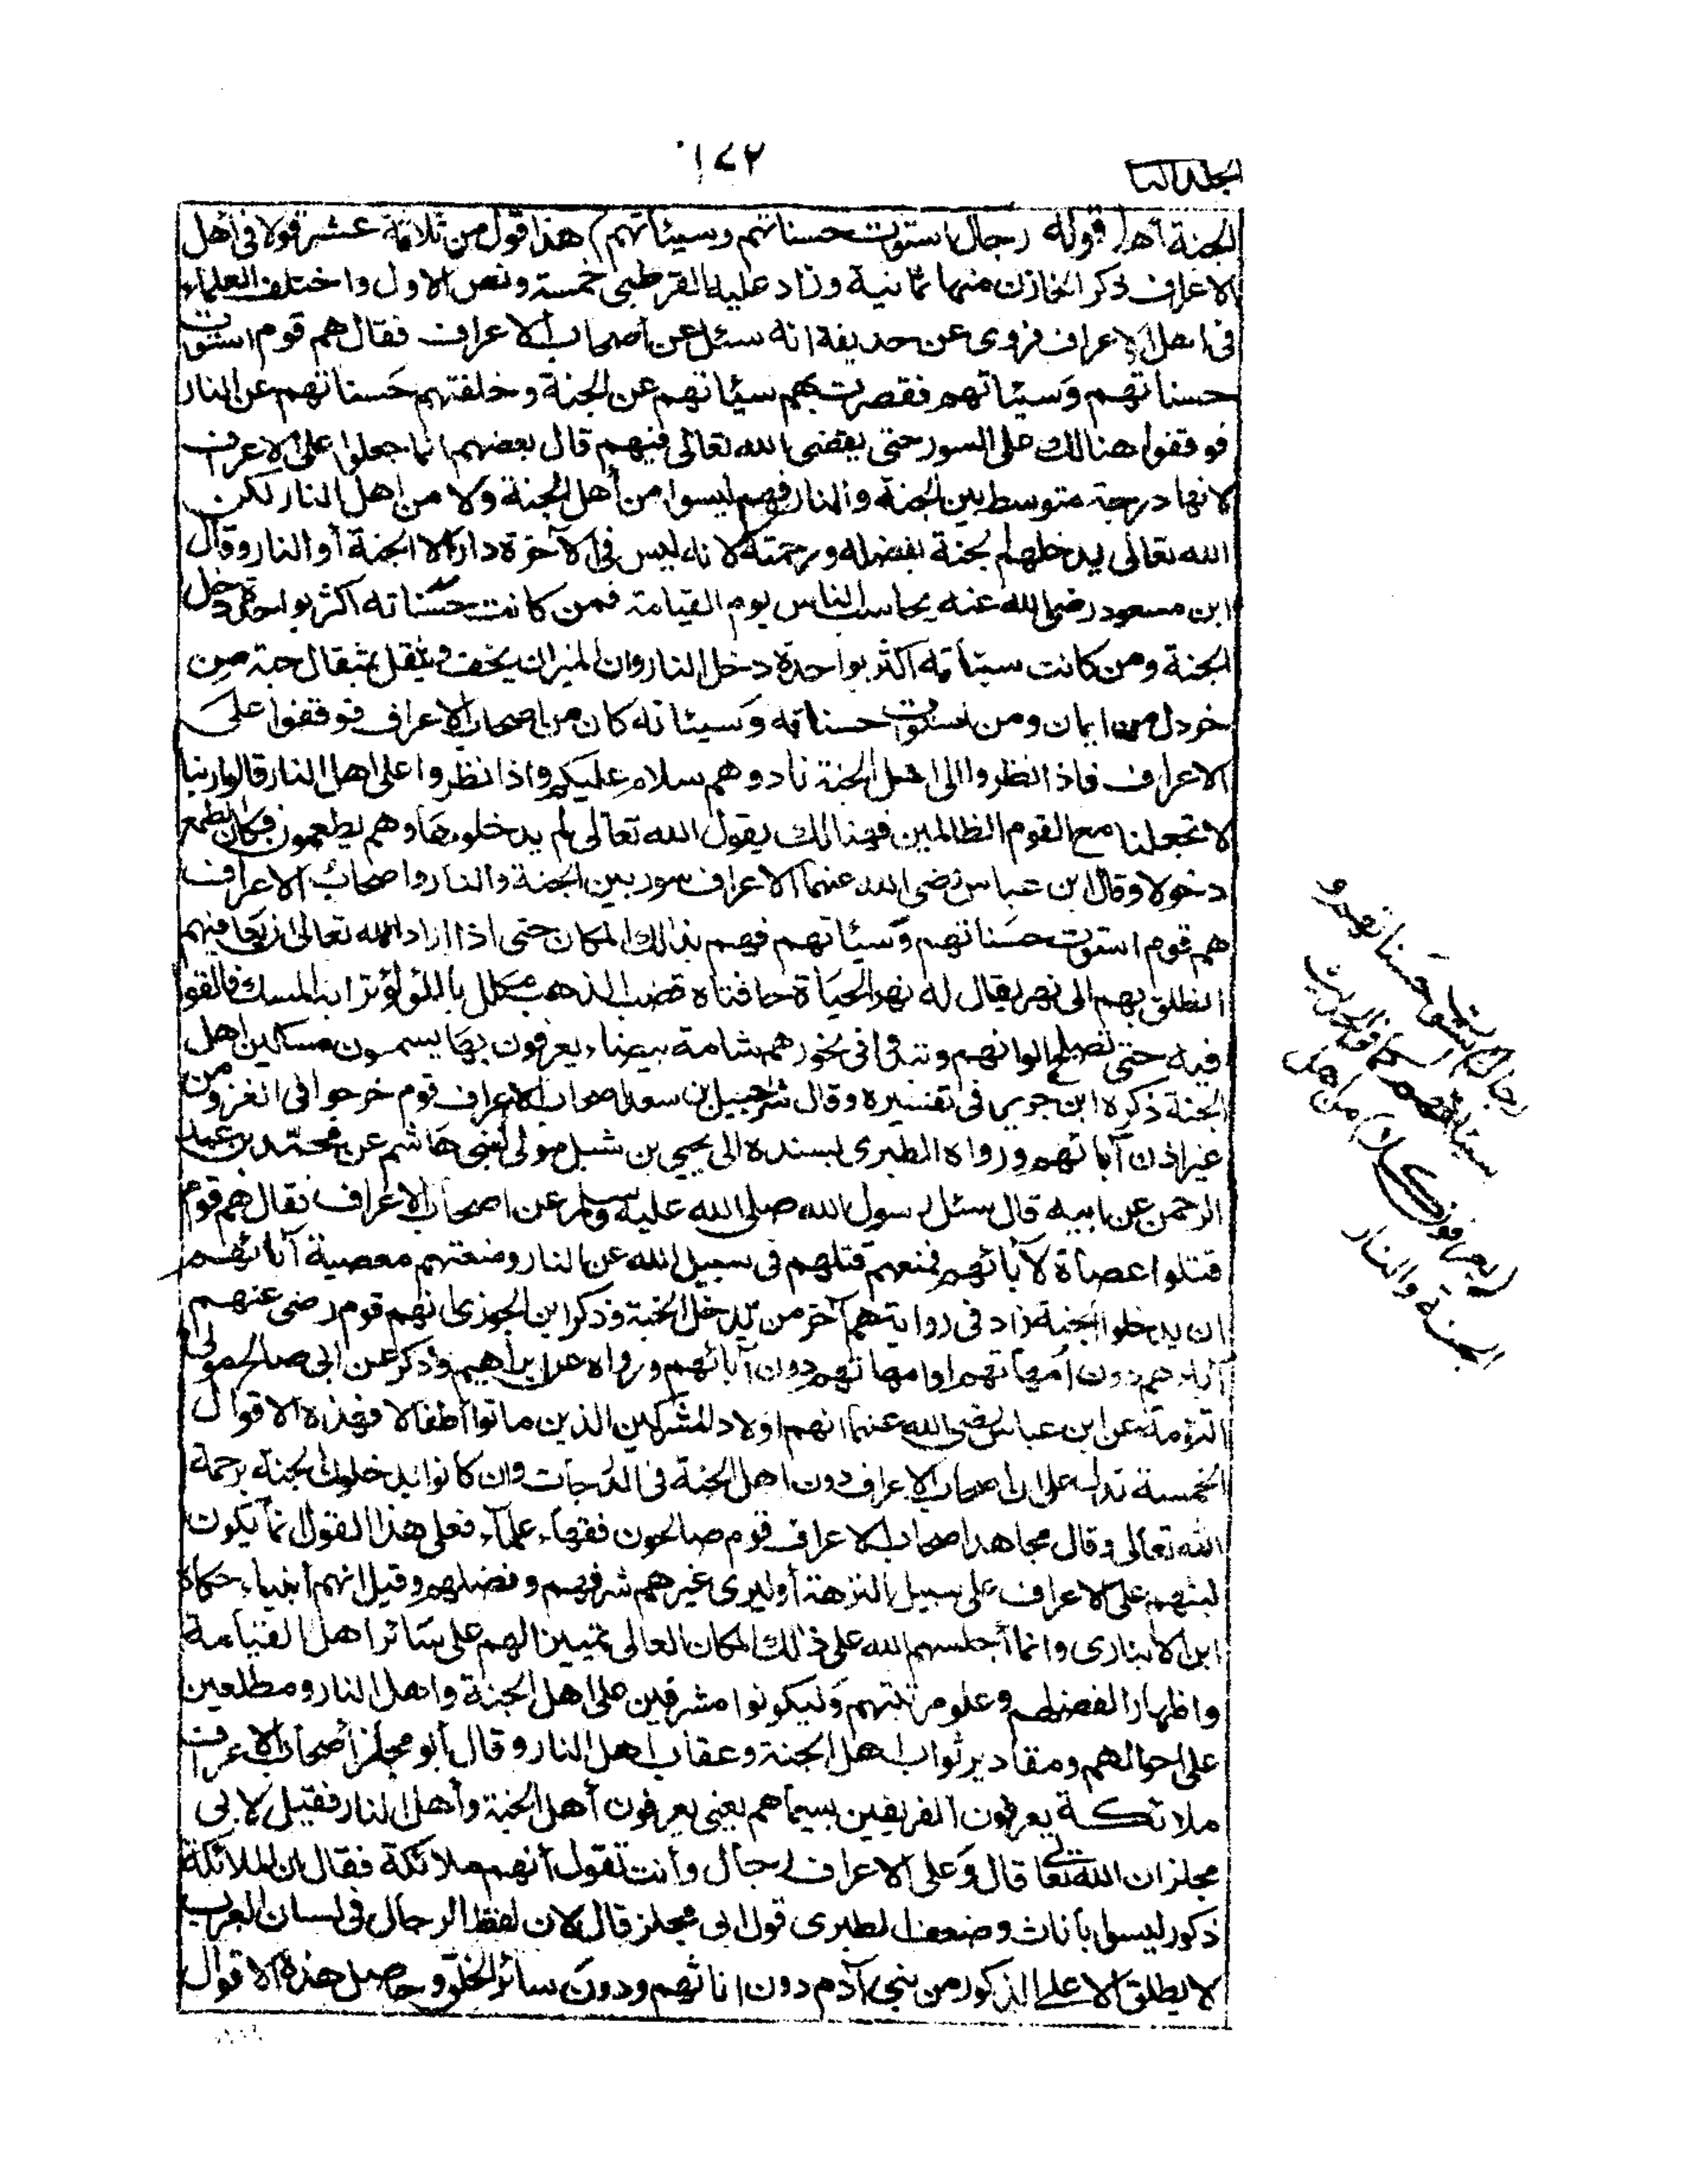 ١٧٢
المجلد الثا
الجنة أهل قوله رجال استوت حسناتهم وسيئاتهم) هذا قول من ثلاثة عشر قولا فى أهل
الاعراف ذكر الخازن منها ثمانية وزاد عليه القرطبى خمسة ونص الاول واختلف العلماء
فى اهل الاعراف فروى عن حذيفة انه سئل عن أصحاب الاعراف فقال هم قوم استوت
حسناتهم وسيئاتهم فقصرت بهم سيئاتهم عن الجنة وخلفتهم حسناتهم عن النار
فوقفوا هنالك على السور حتى يقضى الله تعالى فيهم قال بعضهم انما جعلوا على الاعراف
لانها درجة متوسط بين الجنة والنار فهم ليسوا من أهل الجنة ولا من اهل النار لكن
الله تعالى يدخلهم الجنة بفضله ورحمته لانه ليس فى الآخرة دار الا الجنة أو النار وقال
ابن مسعود رضى الله عنه يحاسب الناس يوم القيامة فمن كانت حسناته أكثر بواحدة دخل
الجنة ومن كانت سيئاته أكثر بواحدة دخل النار وان الميزان يخف ويثقل بمثقال حبة من
خردل من ايمان ومن استوت حسناته وسيئاته كان من اصحاب الاعراف فوقفوا على
الاعراف فاذا نظروا الى اهل الجنة نادوهم سلام عليكم واذا نظروا على اهل النار قالوا ربنا
لا تجعلنا مع القوم الظالمين فهنالك يقول الله تعالى لم يدخلوها وهم يطمعون فكان الطمع
دخولا وقال ابن عباس رضى الله عنهما الاعراف سور بين الجنة والنار واصحاب الاعراف
هم قوم استوت حسناتهم وسيئاتهم فهم بذلك المكان حتى اذا اراد الله تعالى ان يعافيهم
انطلق بهم الى نهر يقال له نهر الحياة حافتاه قضب الذهب مكلل باللؤلؤ ترابه المسك فالقوا
فيه حتى تصلح الوانهم وتبقى فى نحورهم شامة بيضاء يعرفون بها يسمون مساكين اهل
الجنة ذكره ابن جرير فى تفسيره وقال شرحبيل بن سعد اصحاب الاعراف قوم خرجوا فى الغزو من
غير اذن آبائهم ورواه الطبرى بسنده الى يحيى بن شبل مولى لبنى هاشم عن محمد بن عبد
الرحمن عن ابيه قال سئل رسول الله صلى الله عليه وسلم عن اصحاب الاعراف فقال هم قوم
قتلوا عصاة لآبائهم فمنعهم قتلهم فى سبيل الله عن النار ومنعتهم معصية آبائهم
ان يدخلوا الجنة زاد فى رواية هم آخر من يدخل الجنة وذكر ابن الجوزى انهم قوم رضى عنهم
آباؤهم دون امهاتهم او امهاتهم دون آبائهم ورواه عن ابراهيم وذكر عن ابى صالح مولى
التؤمة عن ابن عباس رضى الله عنهما انهم اولاد المشركين الذين ماتوا أطفالا فهذه الاقوال
الخمسة تدل على ان اصحاب الاعراف دون اهل الجنة فى الدرجات وان كانوا يدخلون الجنة برحمة
الله تعالى وقال مجاهد اصحاب الاعراف قوم صالحون فقهاء علماء فعلى هذا القول انما يكون
لبثهم على الاعراف على سبيل النزهة أو ليرى غيرهم شرفهم وفضلهم وقيل انهم أنبياء حكاه
ابن الانبارى وانما أجلسهم الله على ذلك المكان العالى تمييزا لهم على سائر اهل القيامة
واظهارا لفضلهم وعلو مرتبتهم وليكونوا مشرفين على اهل الجنة واهل النار ومطلعين
على احوالهم ومقادير ثواب اهل الجنة وعقاب اهل النار وقال أبو مجلز أصحاب الاعراف
ملائكة يعرفون الفريقين بسيماهم يعنى يعرفون أهل الجنة وأهل النار فقيل لابى
مجلز ان الله تعالى قال وعلى الاعراف رجال وأنت تقول أنهم ملائكة فقال ان الملائكة
ذكور ليسوا بأناث وضعف الطبرى قول ابى مجلز قال لان لفظ الرجال فى لسان العرب
لا يطلق الا على الذكور من بنى آدم دون اناثهم ودون سائر الخلق وحاصل هذه الاقوال
رجال استوت حسناتهم و
سيئاتهم كما فى الحديث
يعرفون كلا من اهل
الجنة والنار